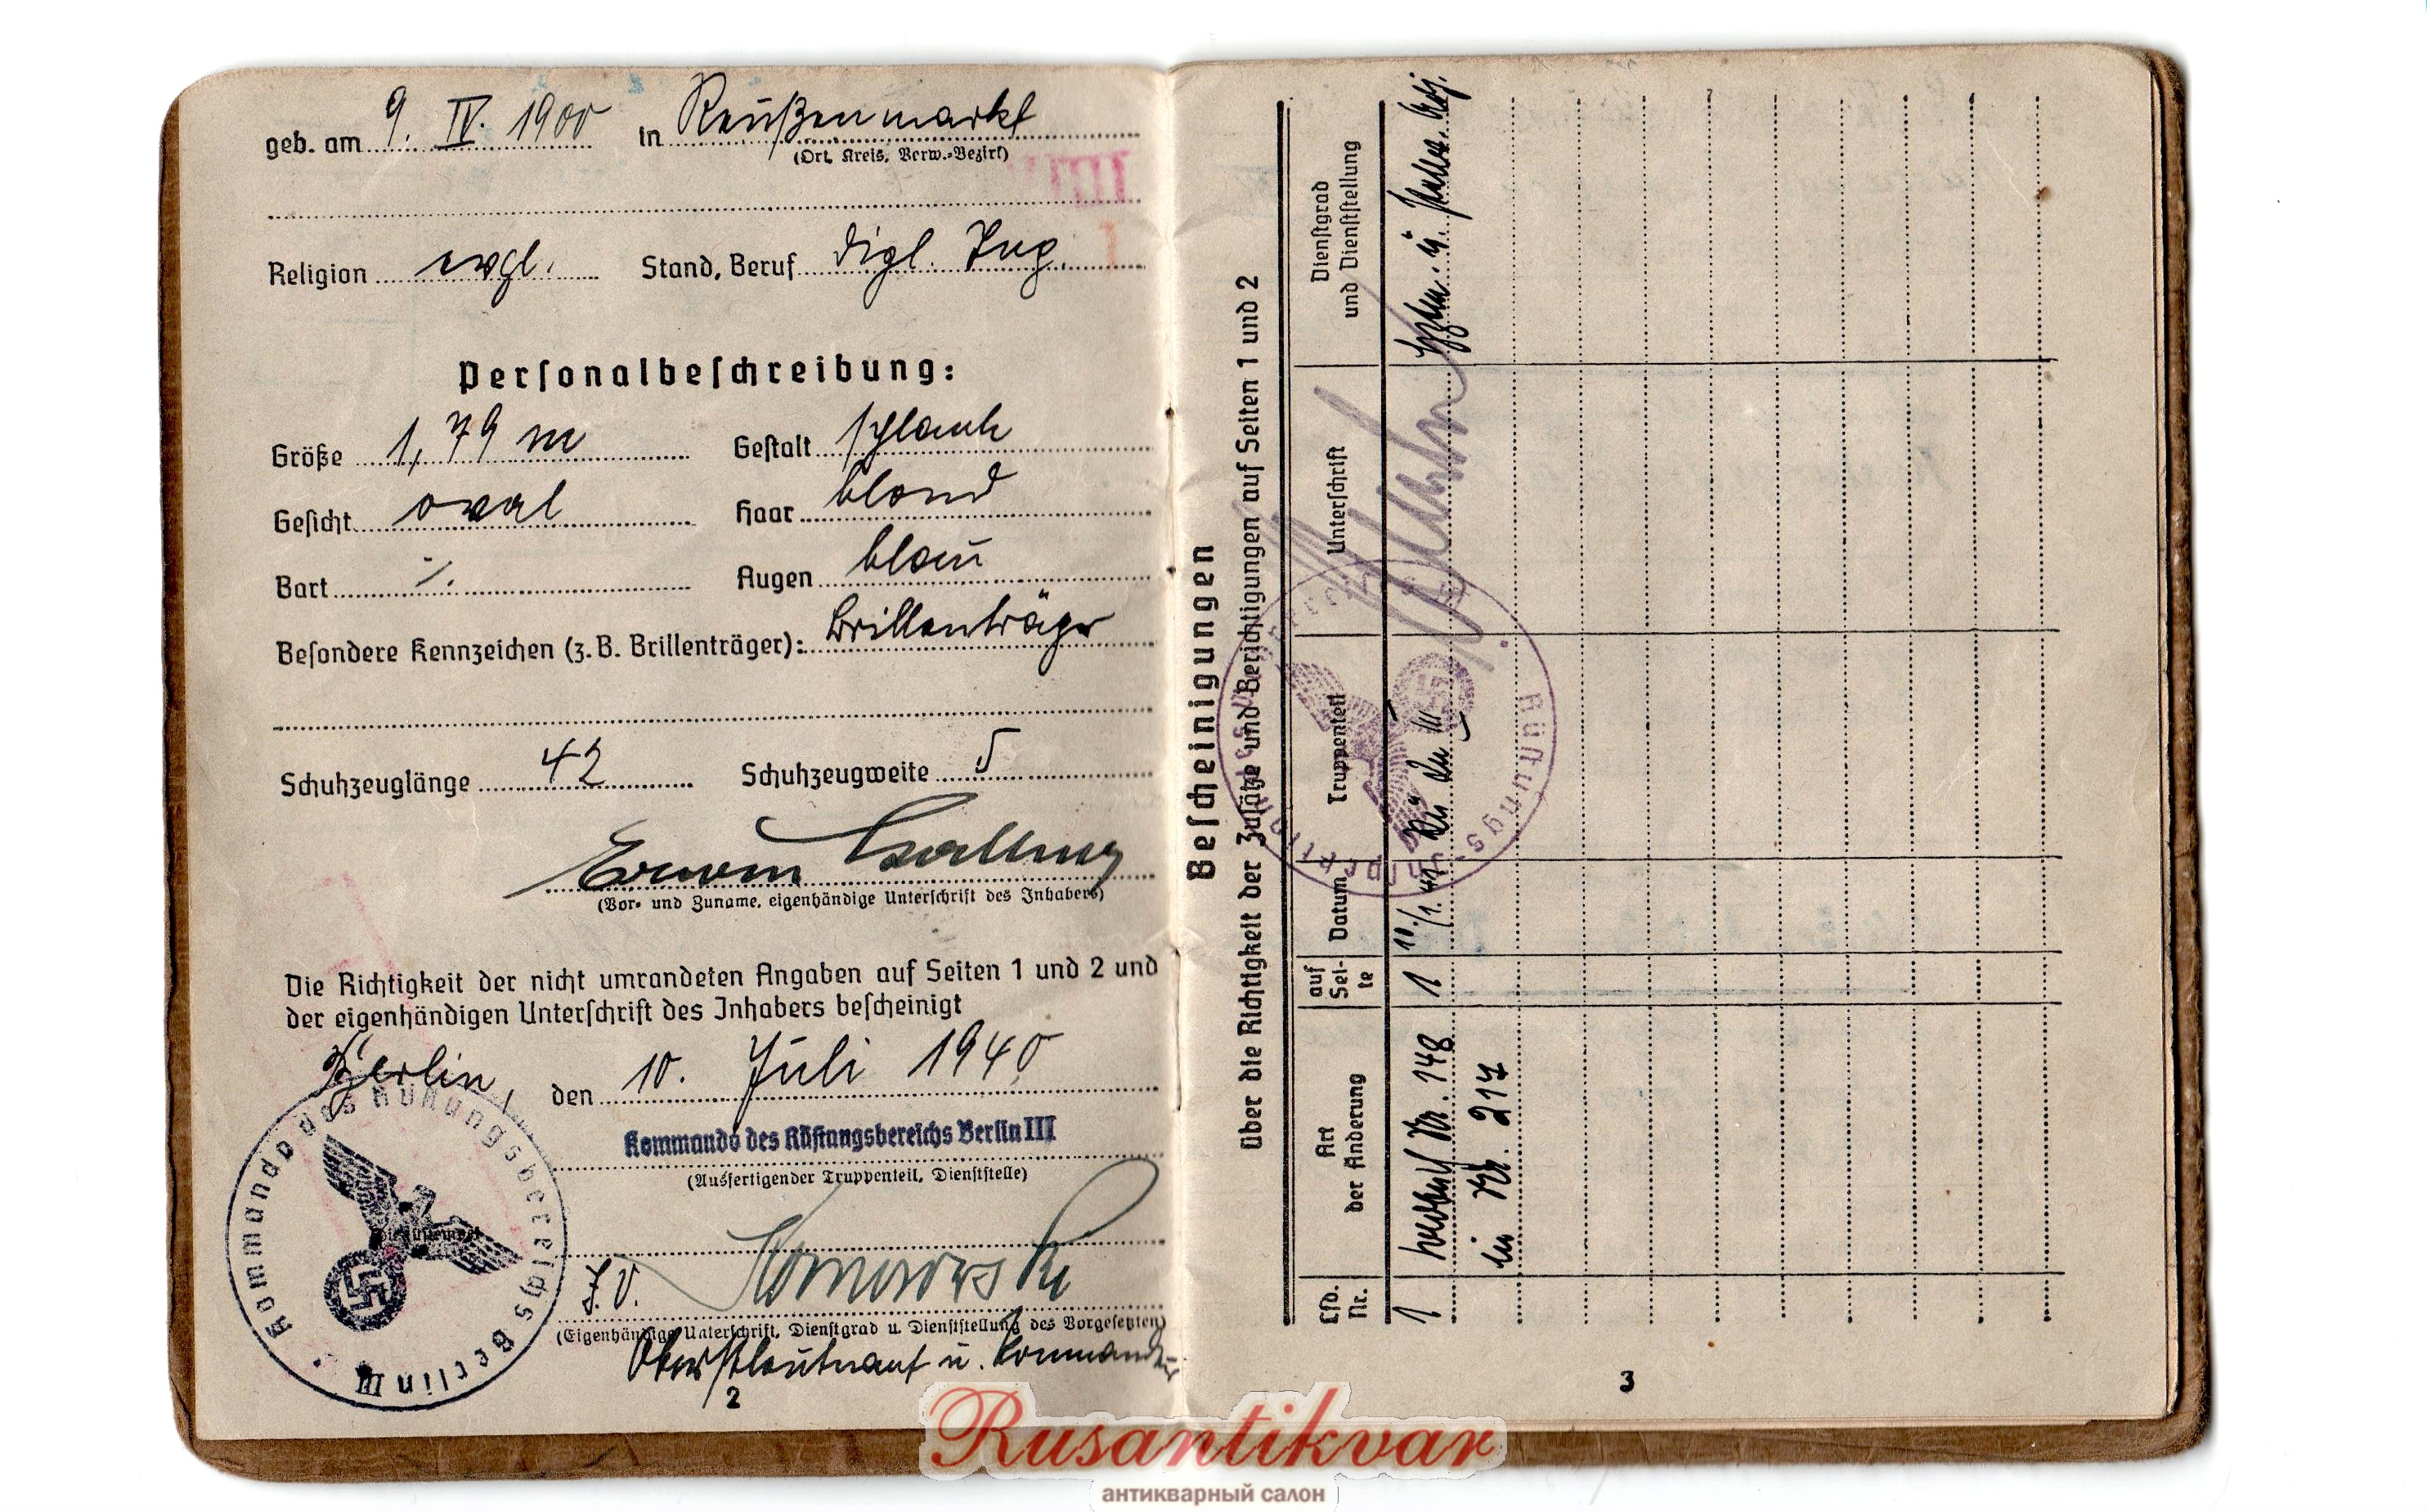 geb. am 9. IV. 1900 in Reußenmarkt
(Ort, Kreis, Verw.=Bezirk)
Religion evgl. Stand, Beruf dipl. Ing.
Personalbeschreibung:
Größe 1,79 m Gestalt schlank
Gesicht oval Haar blond
Bart ./. Augen blau
Besondere Kennzeichen (z. B. Brillenträger): Brillenträger
Schuhzeuglänge 42 Schuhzeugweite 5
Erwin
(Vor- und Zuname, eigenhändige Unterschrift des Inhabers)
Die Richtigkeit der nicht umrandeten Angaben auf Seiten 1 und 2 und
der eigenhändigen Unterschrift des Inhabers bescheinigt
Berlin, den 10. Juli 1940
Kommando des Rüstungsbereichs Berlin III
(Ausfertigender Truppenteil, Dienststelle)
Kommando des Rüstungsbereichs Berlin III
J.V.
(Eigenhändige Unterschrift, Dienstgrad u. Dienststellung des Vorgesetzten)
Oberstleutnant u. Kommandeur
2
Bescheinigungen
über die Richtigkeit der Zusätze und Berichtigungen auf Seiten 1 und 2
Lfd. Nr.
Art der Änderung
auf Sei- te
Datum
Truppenteil
Unterschrift
Dienstgrad und Dienststellung
1 Nr. 148 1 III
in Nr. 217
Rüstungs-Inspektion
3
Rusantikvar
антикварный салон